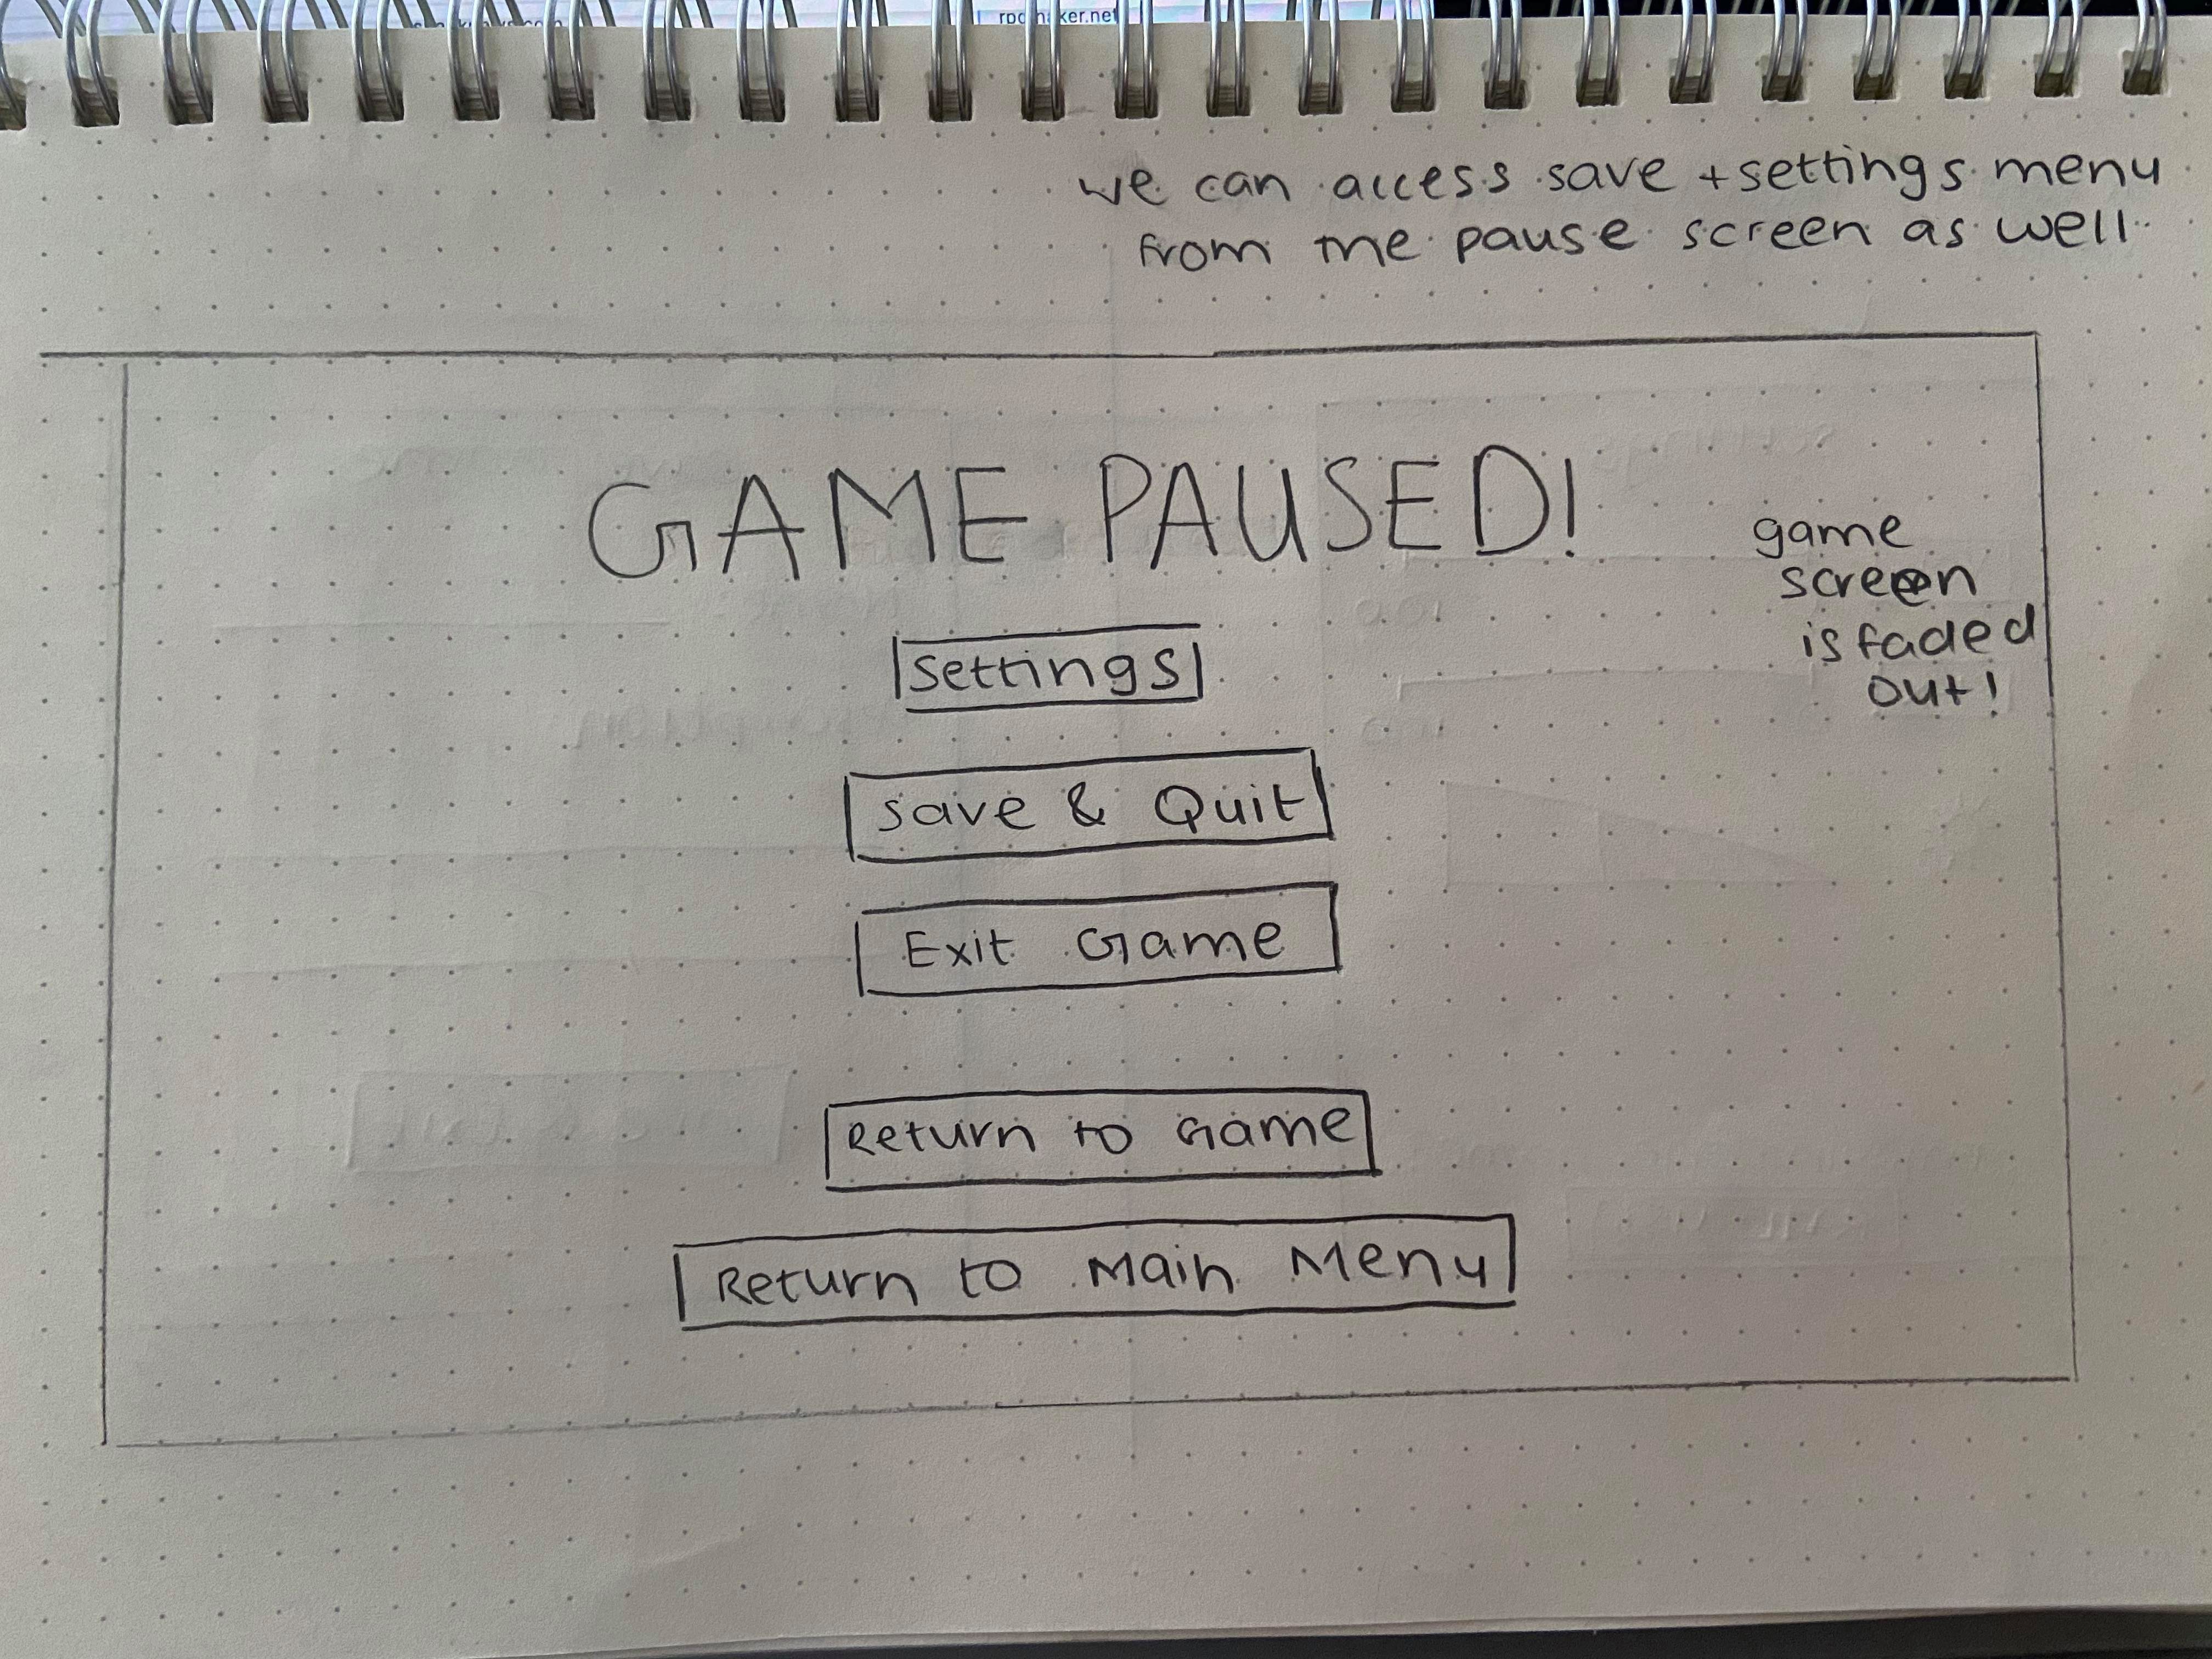 rpgmaker.net
we can access save + settings menu
from the pause screen as well
GAME PAUSED!
game
screen
is faded
out!
Settings
Save & Quit
Exit Game
Return to Game
Return to Main Menu